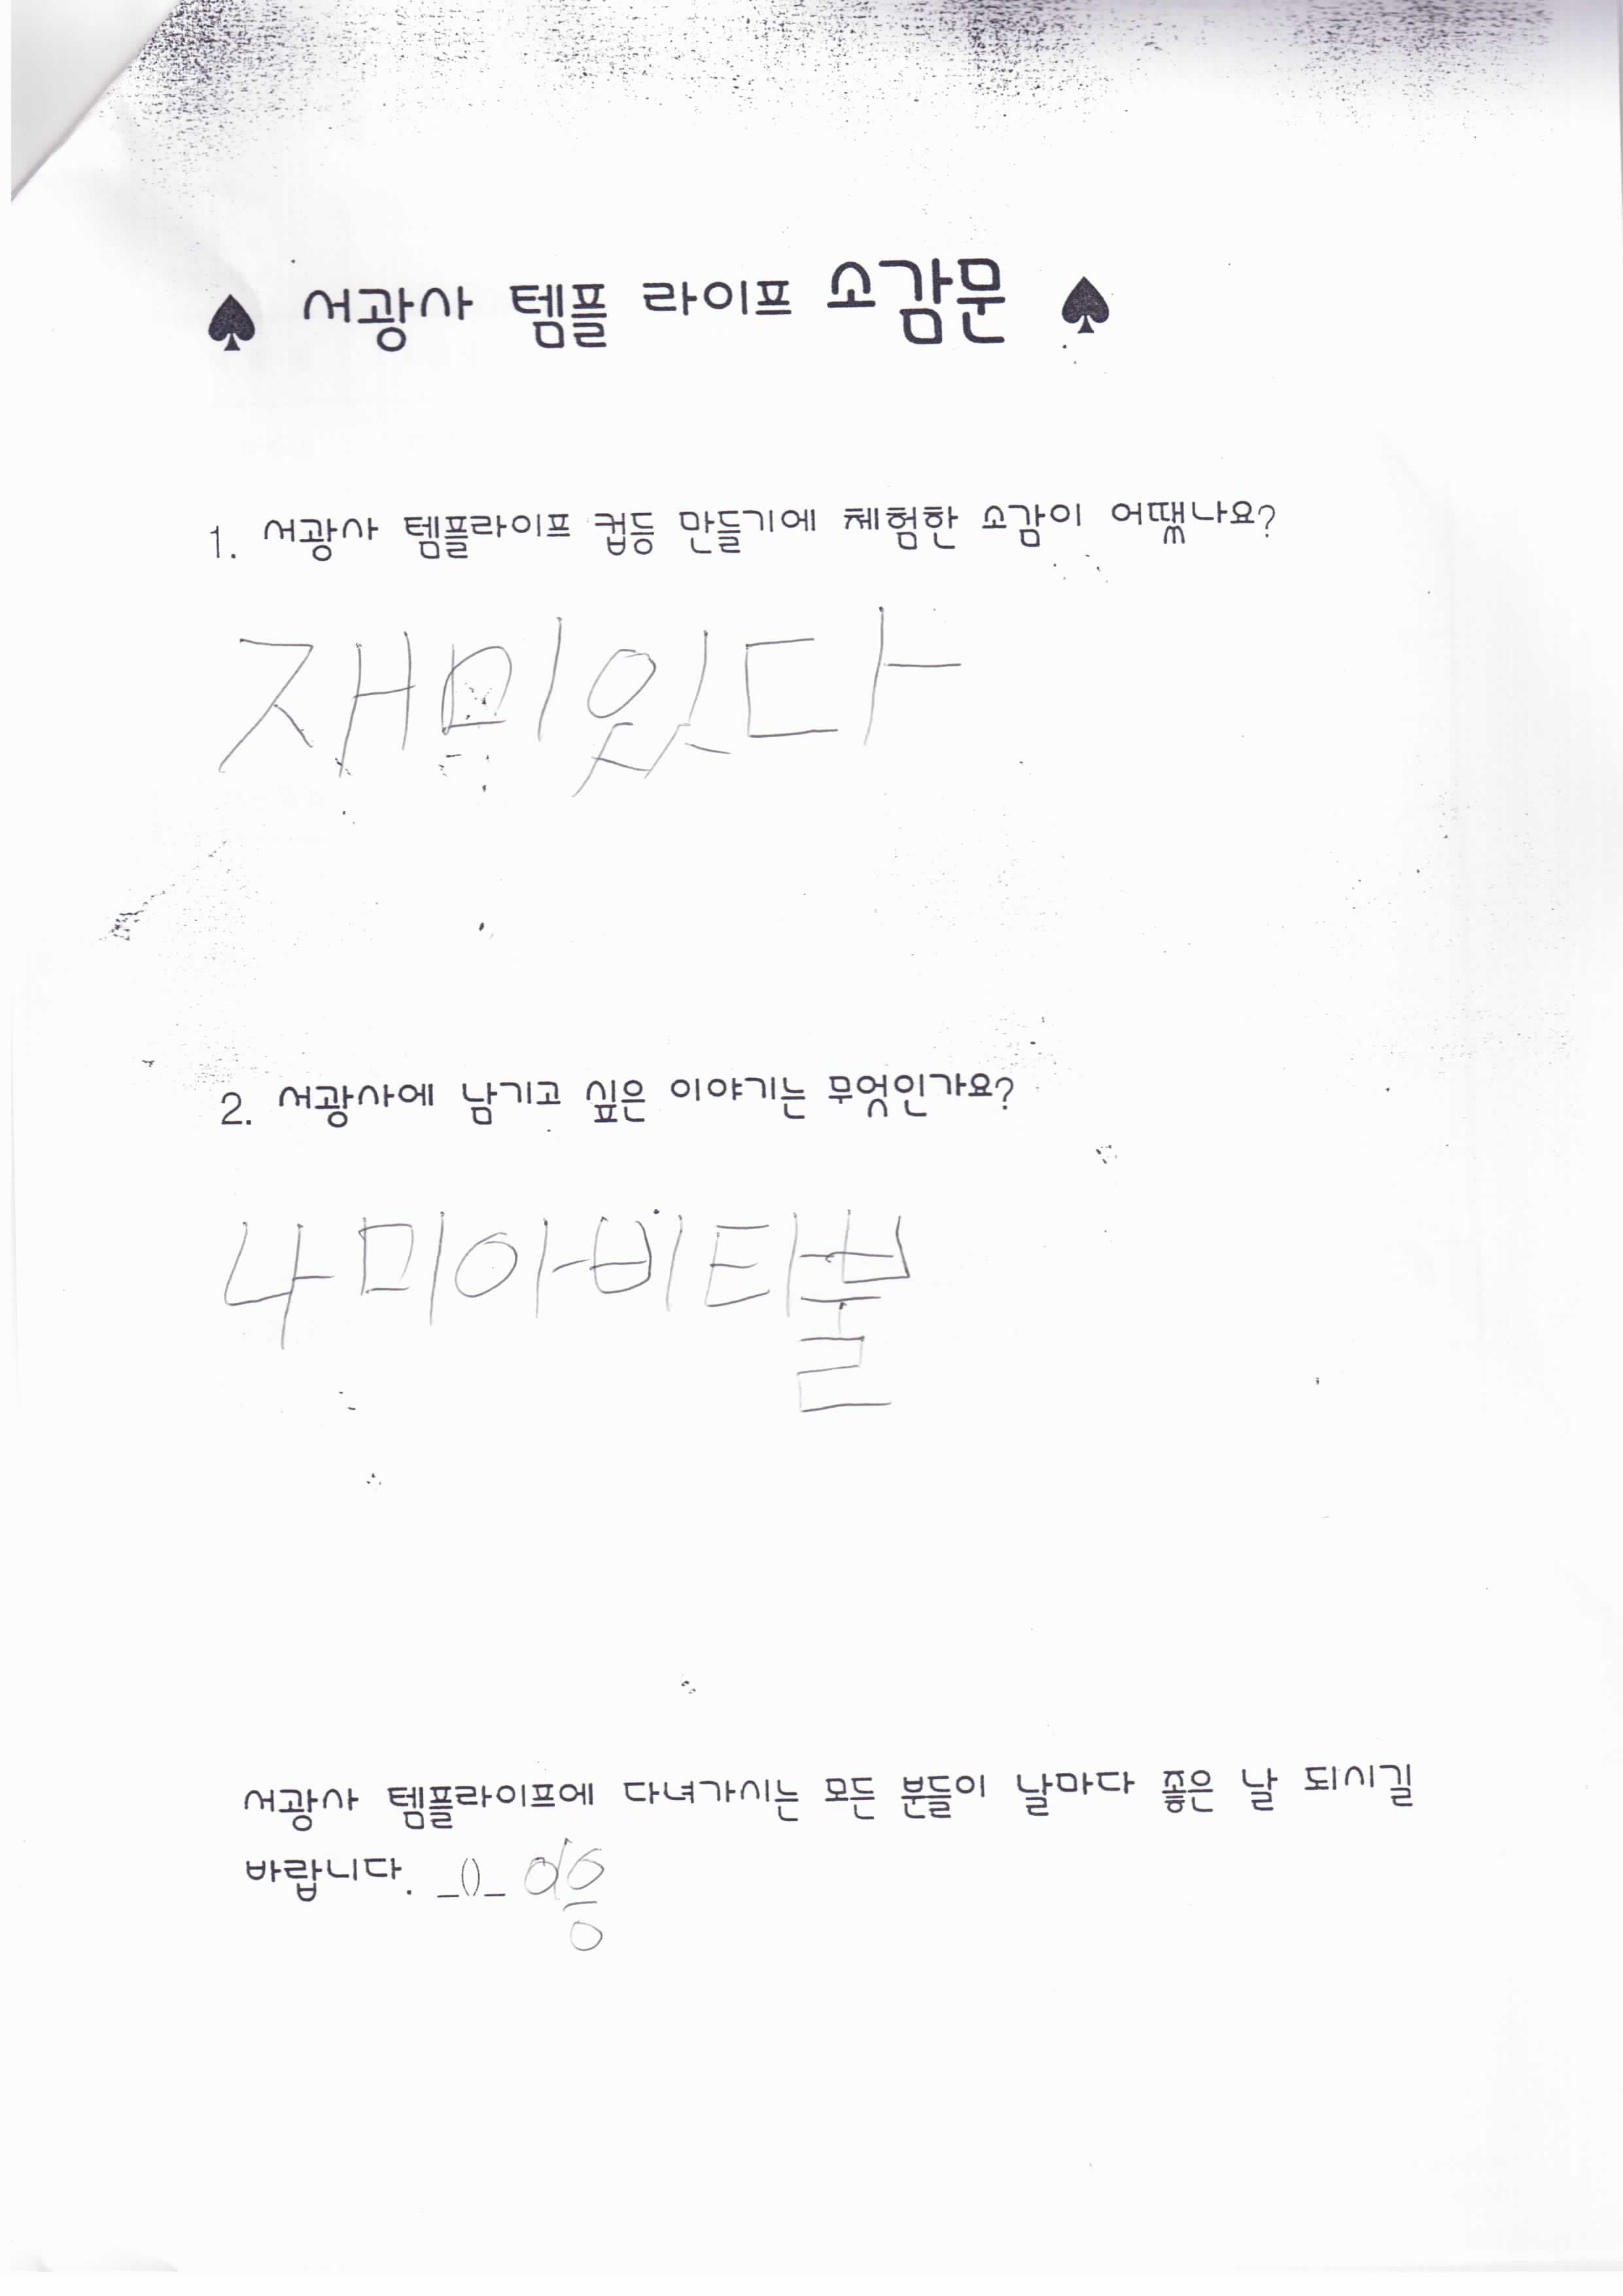 ♠ 서광사 템플 라이프 소감문 ♠
1. 서광사 템플라이프 컵등 만들기에 체험한 소감이 어땠나요?
재미있다
2. 서광사에 남기고 싶은 이야기는 무엇인가요?
나미아비타불
서광사 템플라이프에 다녀가시는 모든 분들이 날마다 좋은 날 되시길
바랍니다. _()_ 이응